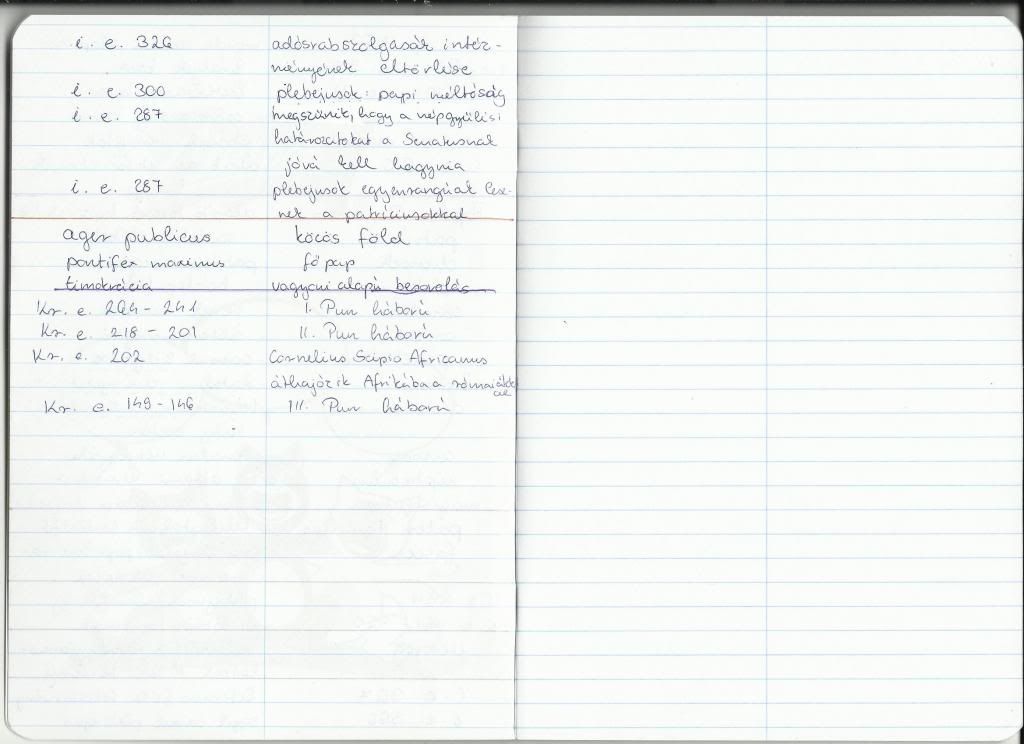 i. e. 326 adósrabszolgaság intéz-
ményének eltörlése
i. e. 300 plebejusok: papi méltóság
i. e. 287 megszűnik, hogy a népgyűlési
határozatokat a Senatusnak
jóvá kell hagynia
i. e. 287 plebejusok egyenrangúak lesz-
nek a patríciusokkal
ager publicus közös föld
pontifex maximus főpap
timokrácia vagyoni alapú besorolás
Kr. e. 264 - 241 I. Pun háború
Kr. e. 218 - 201 II. Pun háború
Kr. e. 202 Cornelius Scipio Africanus
áthajózik Afrikába a római
Kr. e. 149 - 146 III. Pun háború